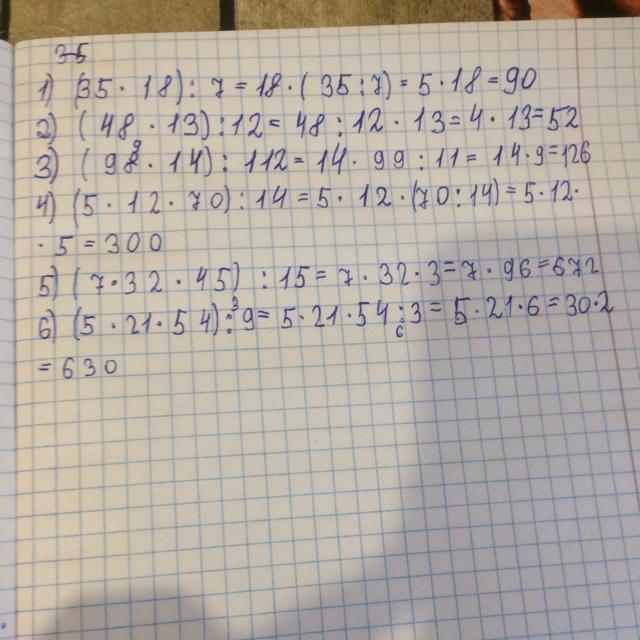 35
1) (35 · 18) : 7 = 18 · (35 : 7) = 5 · 18 = 90
2) (48 · 13) : 12 = 48 : 12 · 13 = 4 · 13 = 52
3) (99 · 14) : 112 = 14 · 99 : 11 = 14 · 9 = 126
4) (5 · 12 · 70) : 14 = 5 · 12 · (70 : 14) = 5 · 12 ·
· 5 = 300
5) (7 · 32 · 45) : 15 = 7 · 32 · 3 = 7 · 96 = 672
6) (5 · 21 · 54) : 9 = 5 · 21 · 54 : 3 = 5 · 21 · 6 = 30 · 2
= 630